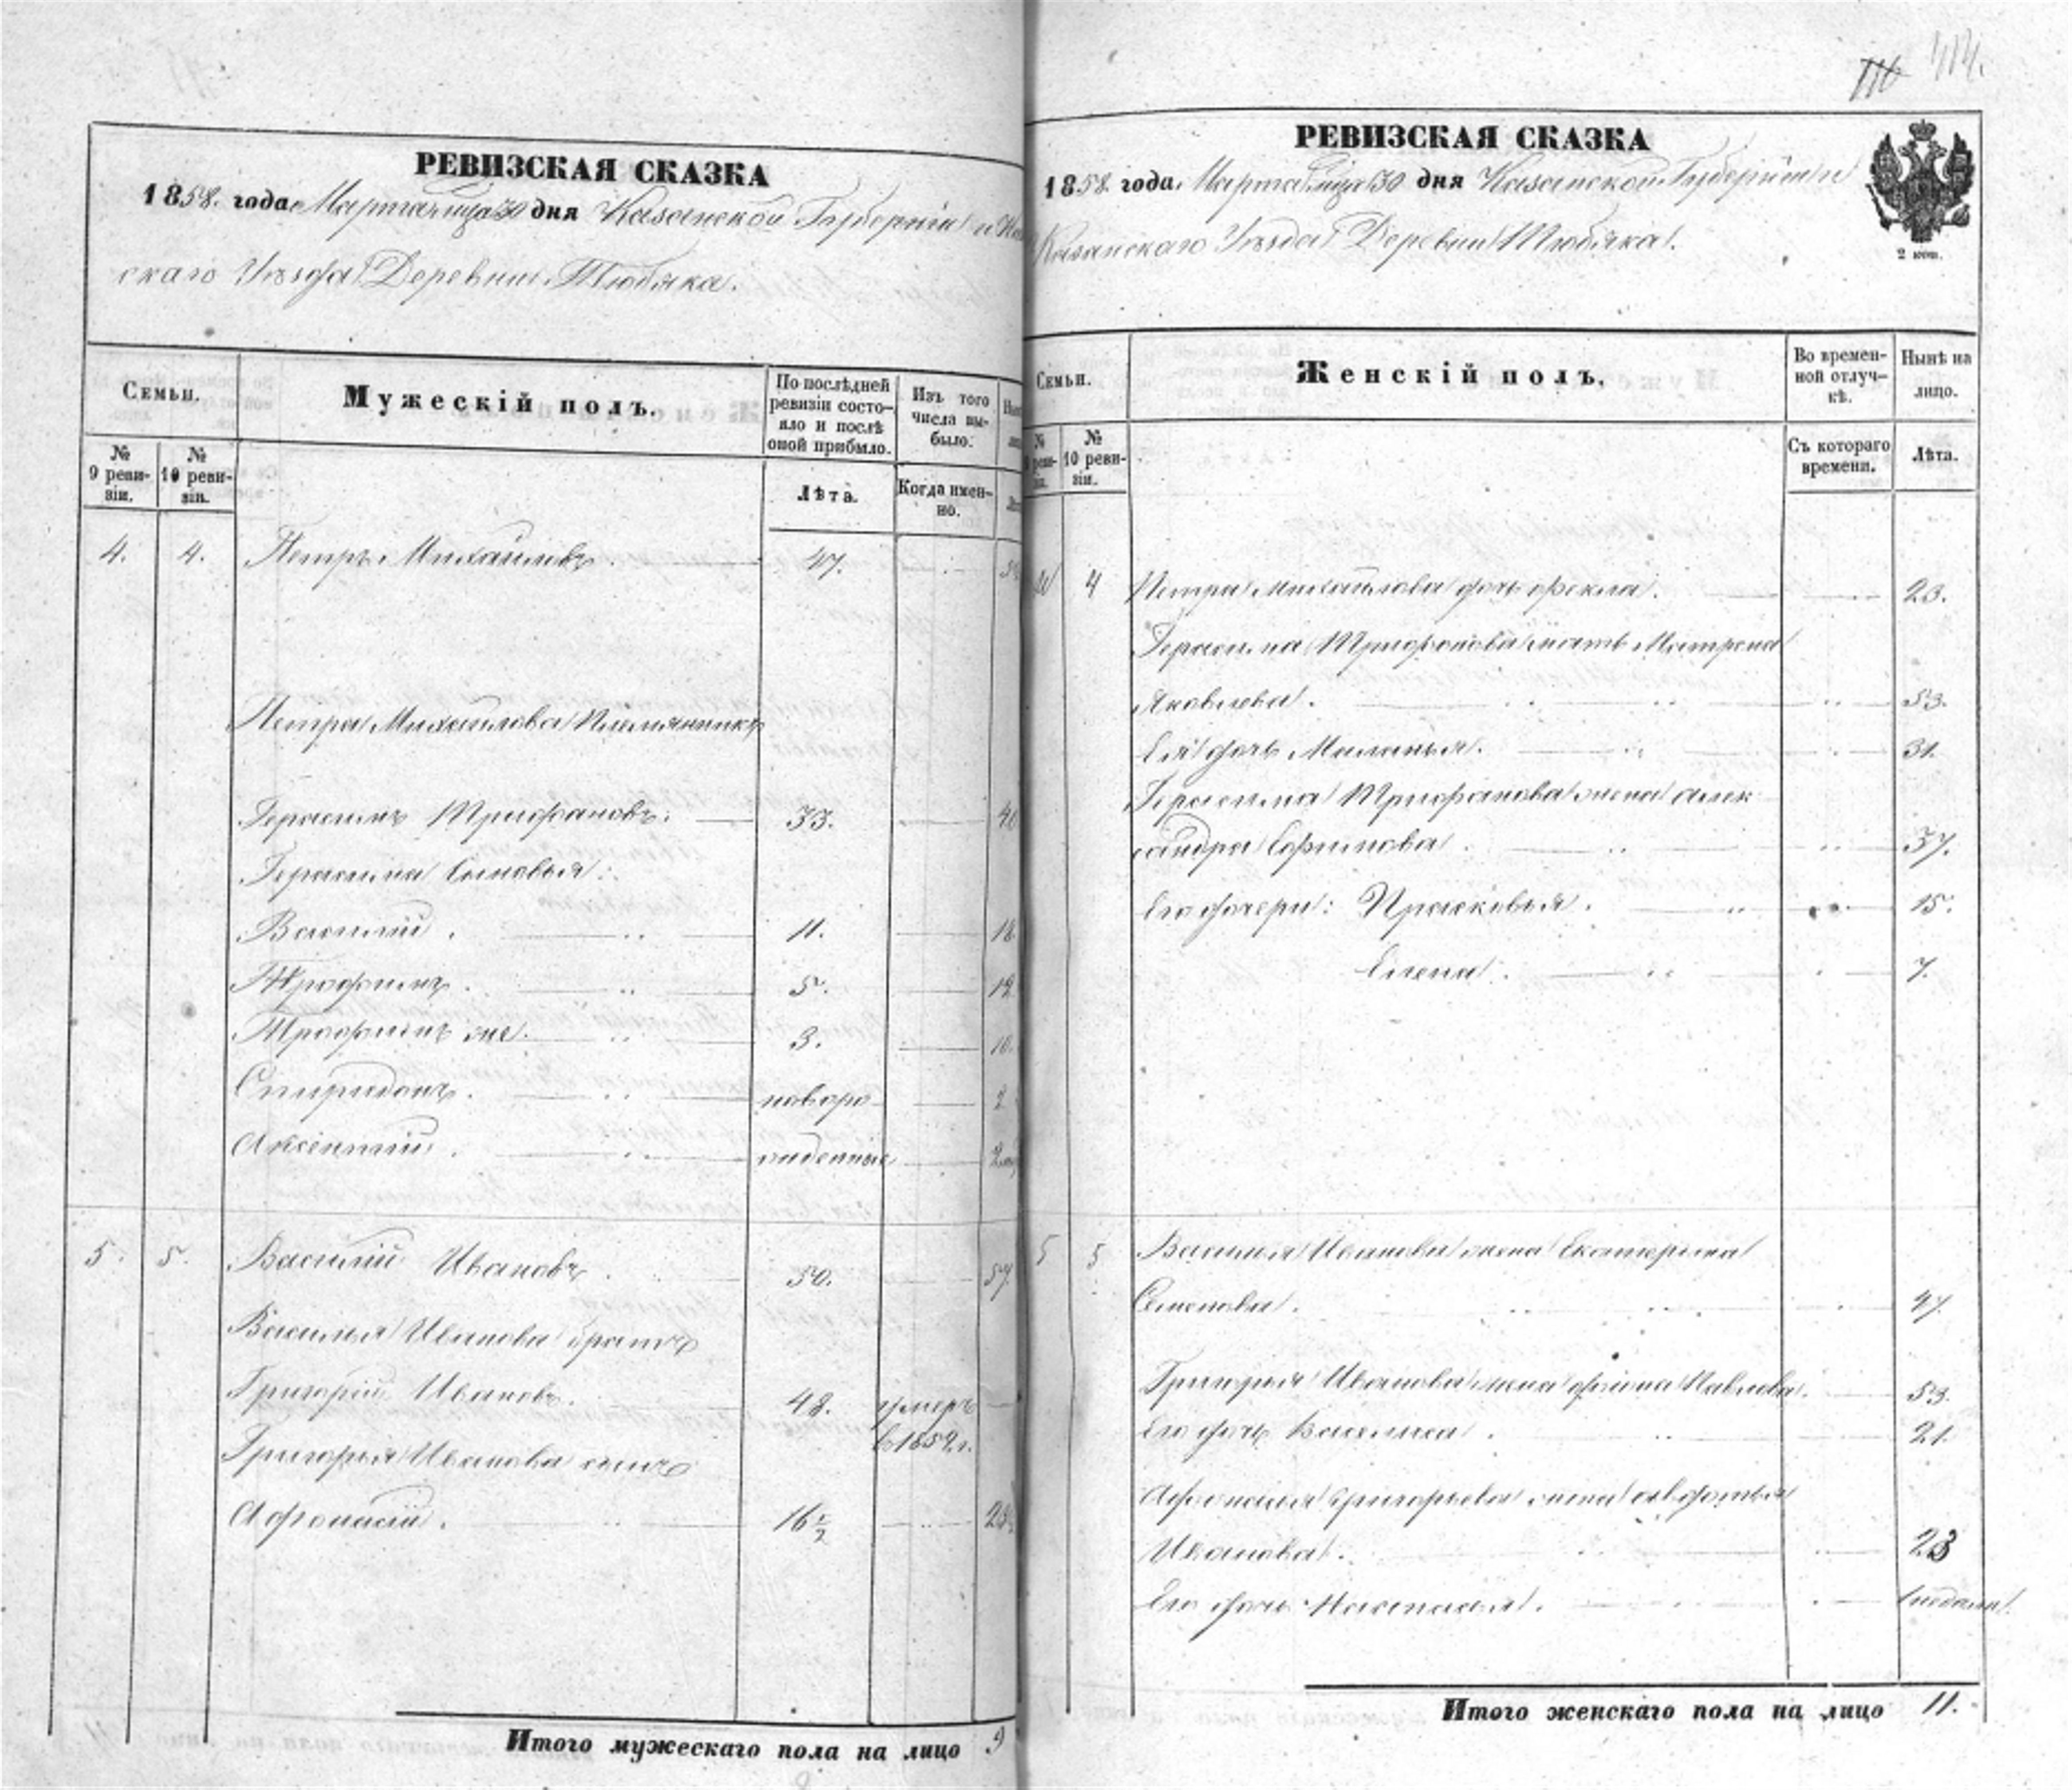 РЕВИЗСКАЯ СКАЗКА
1858. года Марта мца 30 дня Казанской Губерніи и Ка
скаго Уѣзда Деревни Тюбяка.
Семьи.
Мужескій полъ.
По послѣдней ревизіи состояло и послѣ оной прибыло.
Изъ того числа выбыло.
№ 9 ревизіи.
№ 10 ревизіи.
Лѣта.
Когда именно.
4. 4. Петръ Михайловъ. 47.
Петра Михайлова Племянникъ
Герасимъ Трифановъ. 33. 40
Герасима Сыновья:
Василій. 11. 18
Трофимъ. 5. 12
Трофимъ же. 3. 10.
Спиридонъ. новоро 2
Аксентій. жденные
5. 5. Василій Ивановъ. 50. 57.
Василья Иванова братъ
Григорій Ивановъ. 48. умеръ
в 1852 г.
Григорья Иванова сынъ
Афонасій. 16 1/2
Итого мужескаго пола на лицо 9
114.
РЕВИЗСКАЯ СКАЗКА
1858. года. Марта мца 30 дня Казанской Губерніи и
Казанскаго Уѣзда Деревни Тюбяка.
2 коп.
Семьи.
Женскій полъ.
Во временной отлучкѣ.
Нынѣ на лицо.
№ 10 ревизіи.
Съ котораго времени.
Лѣта.
4 Петра Михайлова дочь Фекла. 23.
Герасима Трифонова мать Матрена
Яковлева. 53.
Ея дочь Маланья. 31.
Герасима Трифанова жена Алек
сандра Ефимова. 37.
Его дочери: Прасковья. 15.
Елена. 7.
5 5 Василья Иванова жена Екатерина
Семенова. 47.
Григорья Иванова жена Павлова. 53.
Его дочь Василиса. 21.
Афонасья Григорьева жена Авдотья
Иванова. 23
Его дочь Настасья. 1 недели.
Итого женскаго пола на лицо 11.